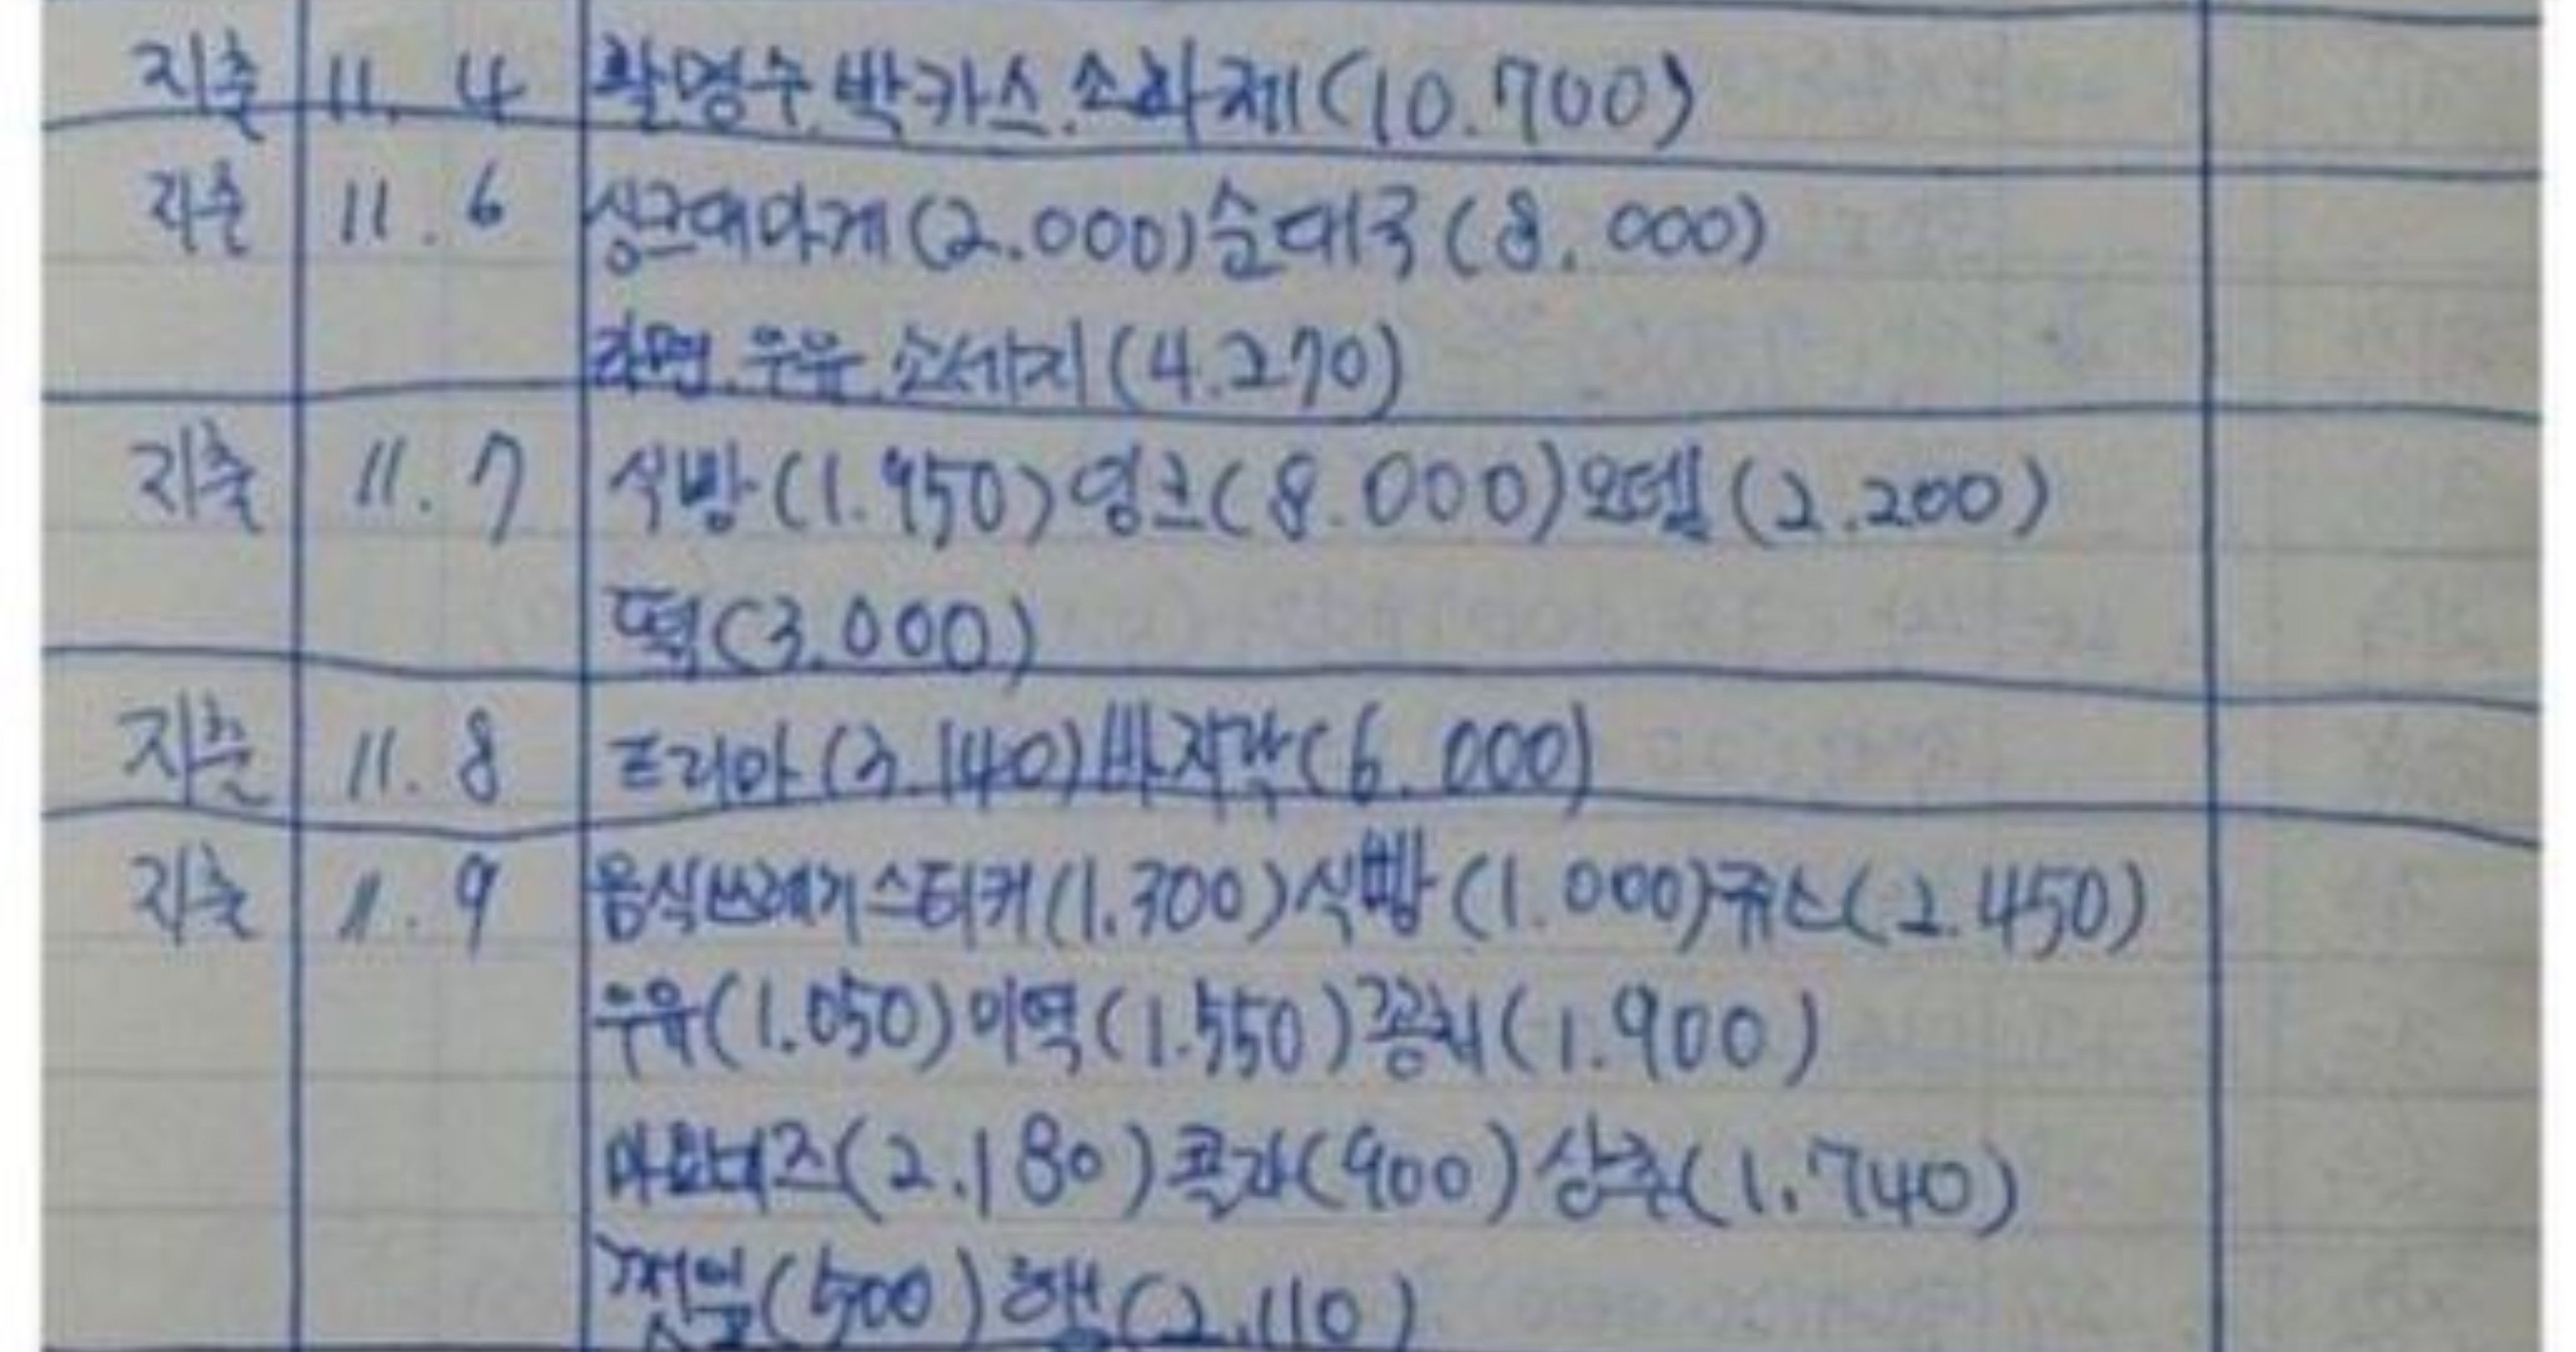 지출 11. 4 활명수.박카스.소화제(10.700)
지출 11. 6 싱크대마개(2.000)순대국(8.000)
라면.우유.소세지(4.270)
지출 11. 7 식빵(1.950)잉크(8.000)오뎅(2.200)
떡(3.000)
지출 11. 8 프리마(3.140)바지락(6.000)
지출 11. 9 음식쓰레기스티커(1.300)식빵(1.000)쥬스(2.450)
우유(1.050)미역(1.550)꽁치(1.900)
마요네즈(2.180)콜라(900)상추(1.740)
깻잎(500)햄(2.110)